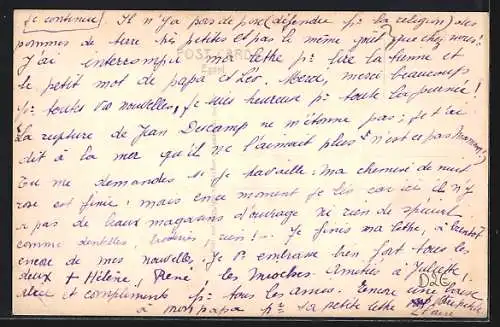 (je continue) Il n'y a pas de porc (défendu pr la religion) des
pommes de terre très petites et pas le même goût que chez nous!
POST CARD
J'ai interrompu ma lettre pr lire la tienne et
le petit mot de papa et Léo. Merci, merci beaucoup
pr toutes vos nouvelles, je suis heureuse pr toute la journée!
La rupture de Jean Descamp ne m'étonne pas; je t'ai
dit à la mer qu'il ne l'aimait plus n'est ce pas Maman?
Tu me demandes si je travaille: ma chemise de nuit
rose est finie; mais en ce moment je lis car ici il n'y
a pas de beaux magasins d'ouvrage ni rien de spécial
comme dentelles, broderies rien! Je finis ma lettre, à bientôt
encore de mes nouvelles. Je vs embrasse bien fort tous les
deux + Hélène, René les mioches Amitiés à Juliette,
et compliments pr tous les amis. Encore une baise
à mon papa pr sa petite lettre petite
D26